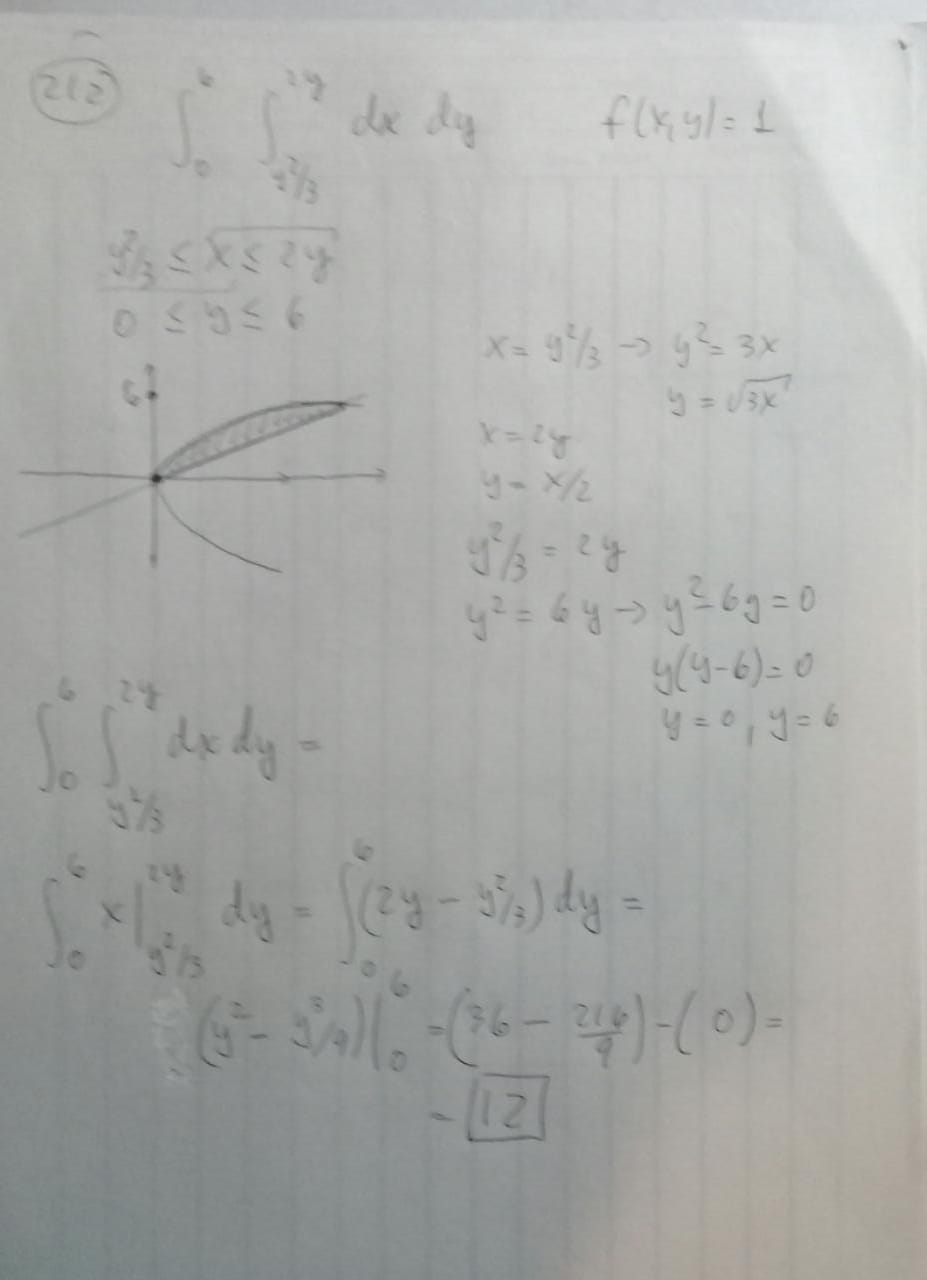 212 ∫₀⁶ ∫_{y²/3}^{2y} dx dy f(x,y) = 1
y²/3 ≤ x ≤ 2y
0 ≤ y ≤ 6
x = y²/3 → y² = 3x
y = √3x
x = 2y
y = x/2
y²/3 = 2y
y² = 6y → y² - 6y = 0
y(y-6) = 0
y = 0, y = 6
6
∫₀⁶ ∫_{y²/3}^{2y} dx dy =
∫₀⁶ x|_{y²/3}^{2y} dy = ∫₀⁶ (2y - y²/3) dy =
(y² - y³/9)|₀⁶ = (36 - 216/9) - (0) =
= 12